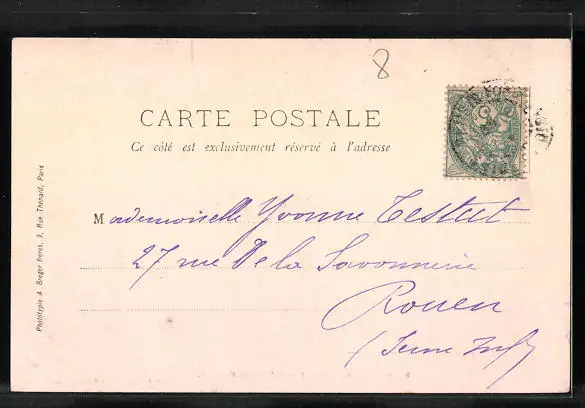 8
CARTE POSTALE
Ce côté est exclusivement réservé à l'adresse
Mademoiselle Yvonne Testut
27 rue De la Savonnerie
Rouen
(Seine Inf)
Phototypie A. Breger frères, 9, Rue Thénard, Paris